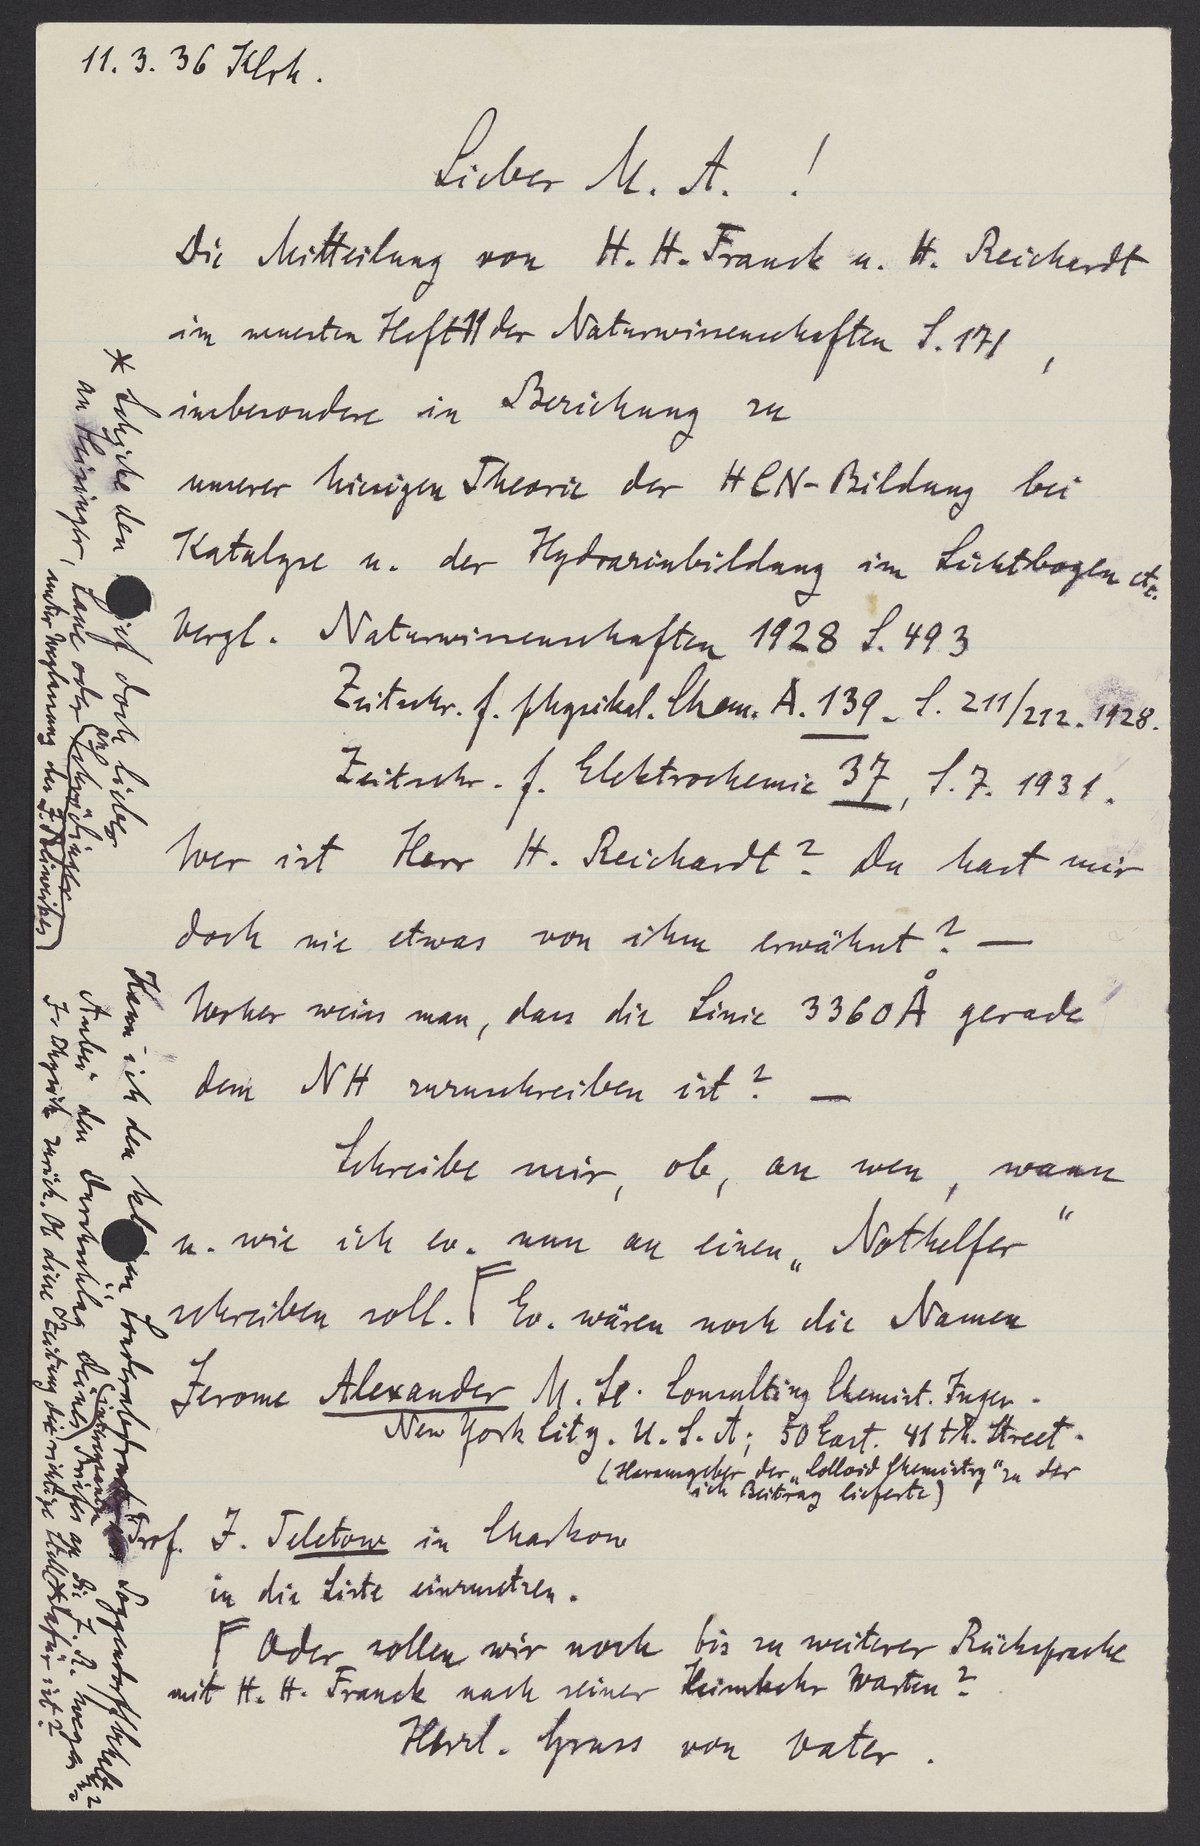 11. 3. 36 Klrh.
Lieber M. A. !
Die Mitteilung von H. H. Franck u. H. Reichardt
im neuesten Heft 11 der Naturwissenschaften S. 171,
insbesondere in Beziehung zu
unserer hiesigen Theorie der HCN-Bildung bei
Katalyse u. der Hydrazinbildung im Lichtbogen etc.
Vergl. Naturwissenschaften 1928 S. 493
Zeitschr. f. physikal. Chem. A. 139. S. 211/212. 1928.
Zeitschr. f. Elektrochemie 37, S. 7. 1931.
Wer ist Herr H. Reichardt? Du hast mir
doch nie etwas von ihm erwähnt? —
Woher weiss man, dass die Linie 3360 Å gerade
dem NH zuzuschreiben ist? —
Schreibe mir, ob, an wen, wann
u. wie ich ev. nun an einen „Nothelfer“
schreiben soll. Ev. wären noch die Namen
Jerome Alexander M. Sc. Consulting Chemist. Ingen.
New York City. U. S. A; 50 East. 41 th. Street.
(Herausgeber der „Colloid Chemistry“ zu der
ich Beitrag lieferte)
Prof. J. Teletow in Charkow
in die Liste einzusetzen.
Oder sollen wir noch bis zu weiterer Rücksprache
mit H. H. Franck nach seiner Heimkehr warten?
Herzl. Gruss von Vater.
* Schicke den doch lieber
an Lane oder an Schrödinger
unter Weglassung des
Kann ich den Sonderabdruck behalten?
Anbei den Durchschlag deines Briefes an die wegen
zurück. Ob diese Zeitung die richtige Stelle dafür ist?